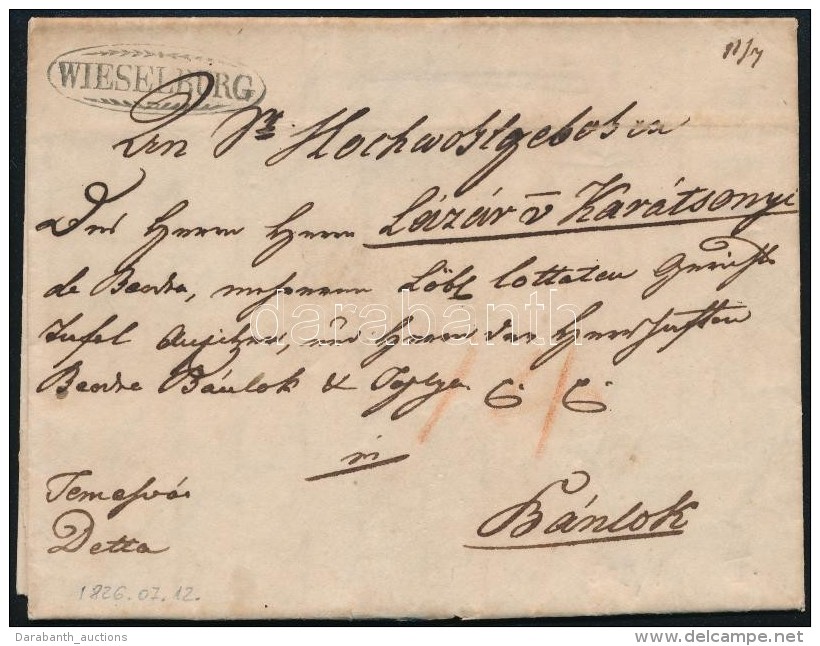 WIESELBURG
18/7
An Sr Hochwohlgebohren
Des Herrn Herrn Lázár v Karátsonyi
de Beodra, mehreren Löbl Gerichts
Tafel Beysitzer, und Herrn der Herrschaften
Beodra Bánlok & Toplya
in
Temesvár
Detta
Bánlok
1826.07.12.
darabanth
Darabanth_auctions
delcampe.net